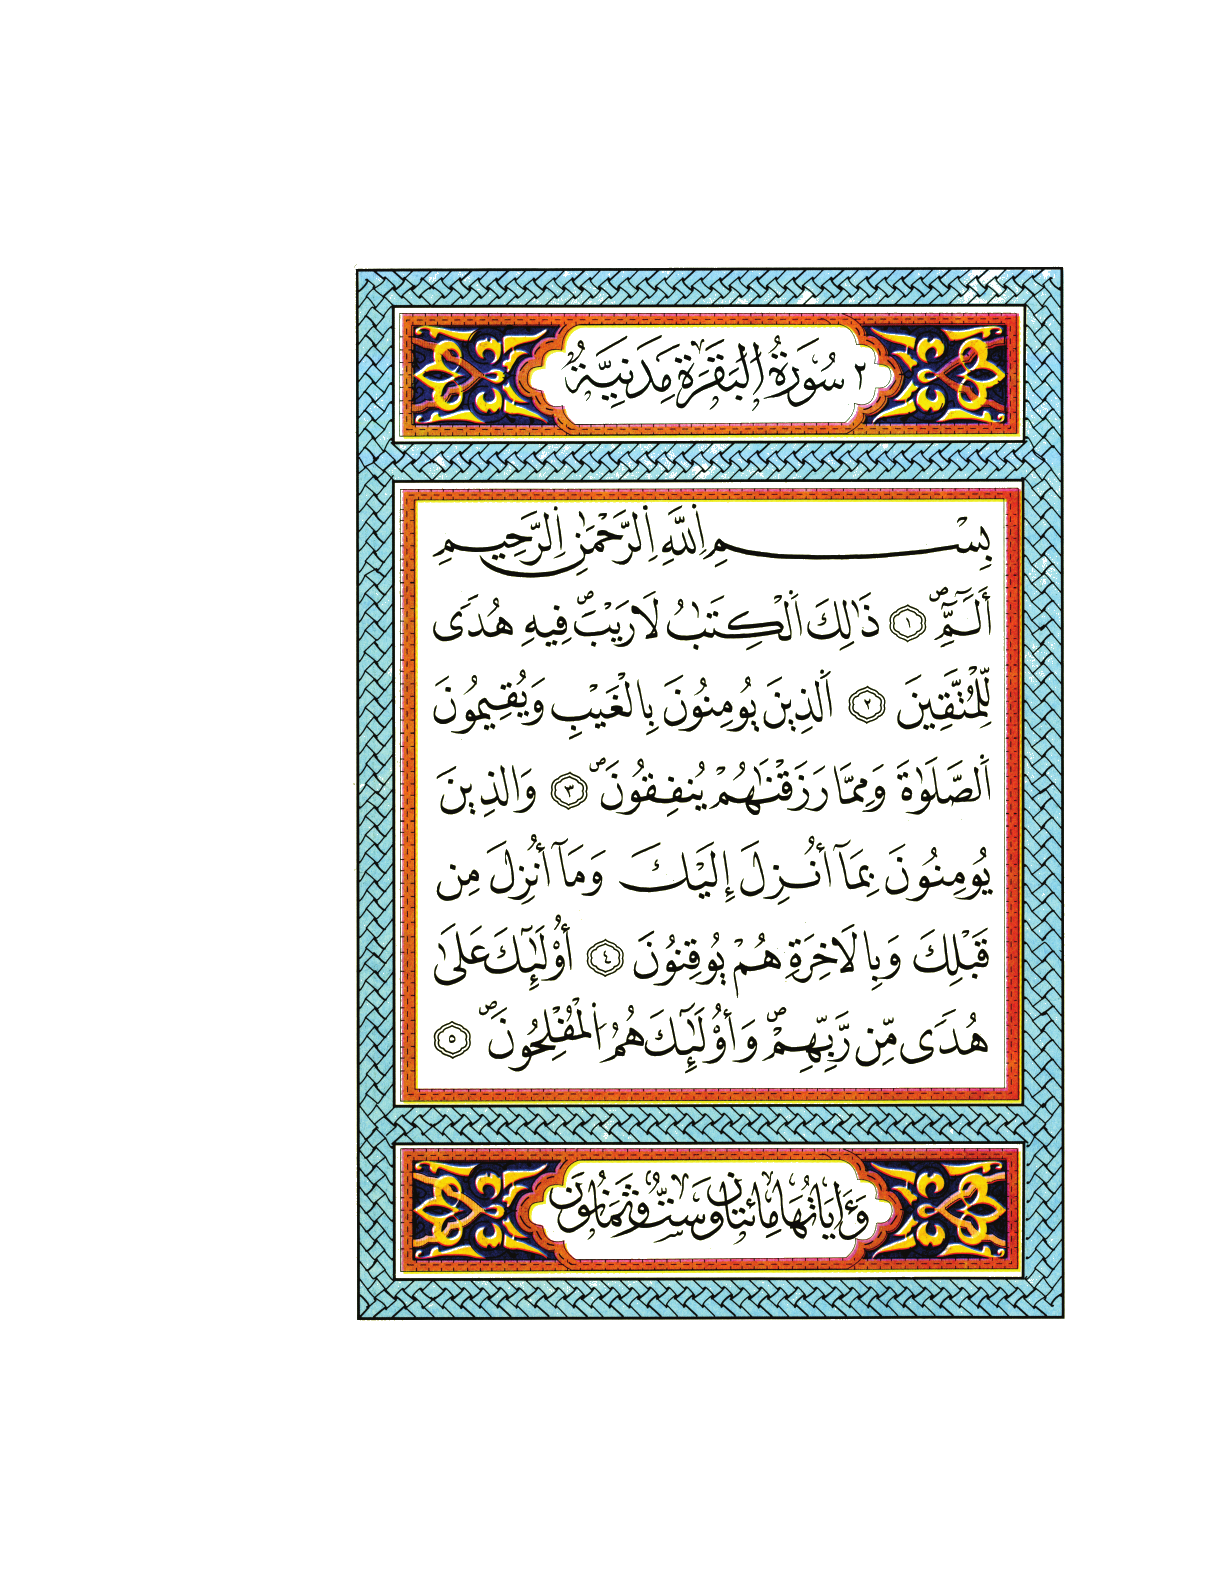 ٢ سُورَةُ الْبَقَرَةِ مَدَنِيَّةٌ
بِسْمِ اِللَّهِ اِلرَّحْمَٰنِ اِلرَّحِيمِ
أَلَٓمِّٓۖ ١ ذَٰلِكَ اَلْكِتَٰبُ لَا رَيْبَۖ فِيهِ هُدىً
لِّلْمُتَّقِينَ ٢ اَلذِينَ يُومِنُونَ بِالْغَيْبِ وَيُقِيمُونَ
اَلصَّلَوٰةَ وَمِمَّا رَزَقْنَٰهُمْ يُنفِقُونَۖ ٣ وَالذِينَ
يُومِنُونَ بِمَآ أُنزِلَ إِلَيْكَ وَمَآ أُنزِلَ مِن
قَبْلِكَ وَبِالَاخِرَةِ هُمْ يُوقِنُونَ ٤ أُوْلَٰٓئِكَ عَلَىٰ
هُدىً مِّن رَّبِّهِمْۖ وَأُوْلَٰٓئِكَ هُمُ اُلْمُفْلِحُونَۖ ٥
وَءَايَاتُهَا مِائَتَانِ وَسِتٌّ وَثَمَانُونَ